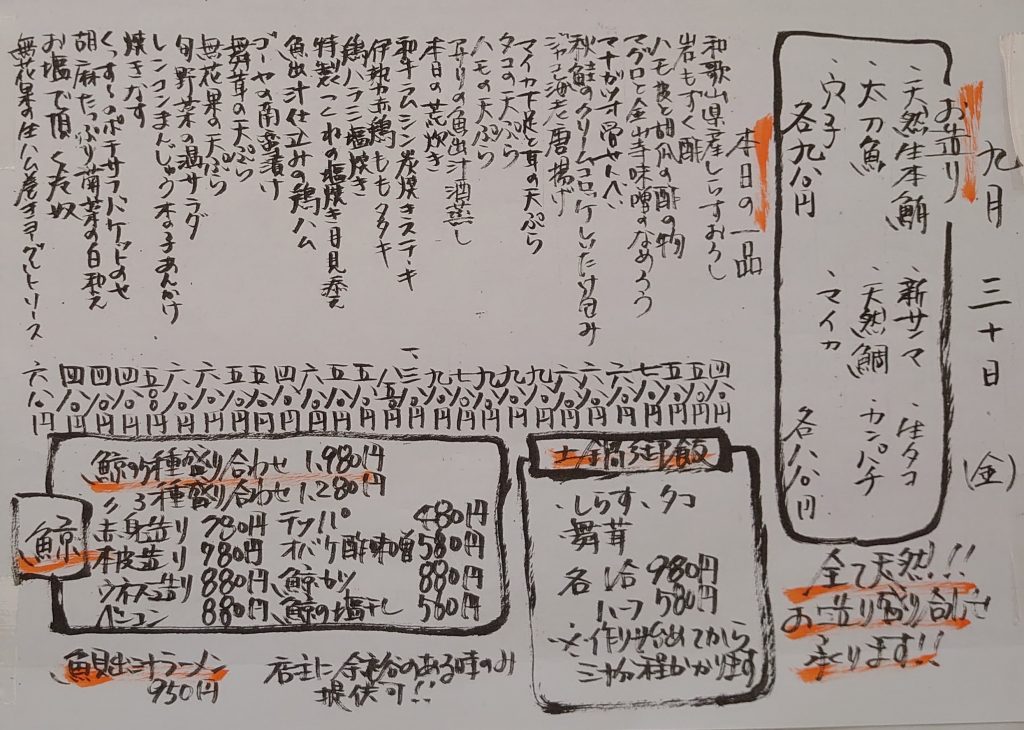 九月三十日(金)
お造り
・天然生本鮪 ・新サンマ ・生タコ
・太刀魚 ・天然鯛 ・カンパチ
・穴子 ・マイカ
各九八〇円 各八八〇円
全て天然!!
お造り盛り合わせ
承ります!!
本日の一品
和歌山県産しらすおろし 四八〇円
岩もずく酢 五八〇円
ハモ皮と胡瓜の酢の物 五八〇円
マグロと金山寺味噌のなめろう 七八〇円
マナガツオ骨せんべい 六八〇円
秋鮭のクリームコロッケしいたけ包み 六八〇円
ジャンボ海老唐揚げ 六八〇円
マイカ下足と耳の天ぷら 九八〇円
タコの天ぷら 九八〇円
ハモの天ぷら 九八〇円
アサリの魚出汁酒蒸し 七八〇円
本日の荒炊き 九八〇円
和牛ラムシン炭焼きステーキ 一、三八〇円
伊勢赤鶏ももタタキ 八五〇円
鶏ハラミ塩焼き 五八〇円
特製つくねの塩焼き月見添え
魚出汁仕立みの鶏ハム
ゴーヤの南蛮漬け
舞茸の天ぷら
無花果の天ぷら
旬野菜の温サラダ
レンコンまんじゅう木の子あんかけ
焼きなす
くんせいのポテサラバケットのせ
胡麻たっぷり菊菜の白和え
お塩で頂く冷奴
無花果の生ハム巻きヨーグルトソース 六八〇円
土鍋御飯
・しらす、タコ
舞茸
各 1合 980円
ハーフ 580円
※作り始めてから
三十分程かかります
鯨
鯨の5種盛り合わせ 1,980円
〃 3種盛り合わせ 1,280円
赤身造り 780円 テッパ 480円
本皮造り 980円 オバケ酢味噌 580円
ウネス造り 880円 鯨カツ 880円
ベーコン 880円 鯨の塩干し 580円
魚出汁ラーメン
950円
店主に余裕のある時のみ
提供可!!